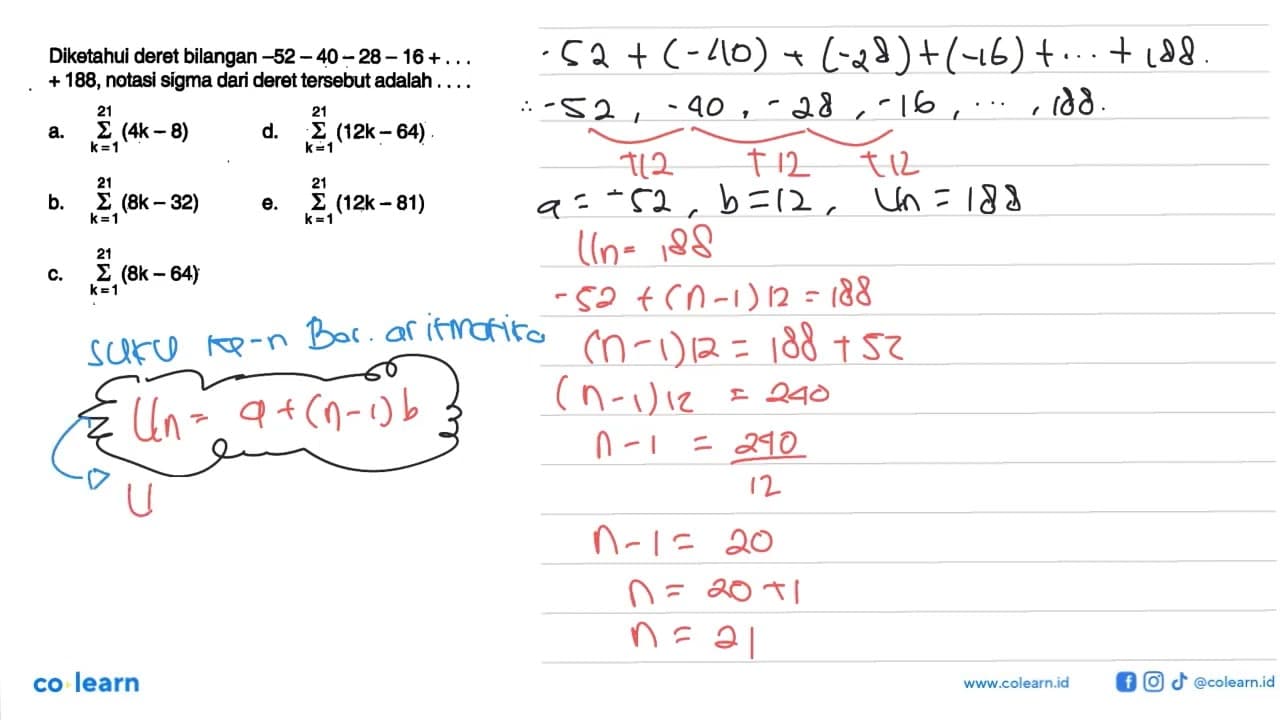 Diketahui deret bilangan –52 – 40 – 28 – 16 + . . .
+ 188, notasi sigma dari deret tersebut adalah . . . .
a. 21 Σ k=1 (4k – 8)
d. 21 Σ k=1 (12k – 64)
b. 21 Σ k=1 (8k – 32)
e. 21 Σ k=1 (12k – 81)
c. 21 Σ k=1 (8k – 64)
suku ke-n Bar. aritmatika
Un = a + (n-1) b
U
-52 + (-40) + (-28) + (-16) + ... + 188.
∴ -52, -40, -28, -16, ..., 188.
+12 +12 +12
a = -52, b = 12, Un = 188
Un = 188
-52 + (n-1) 12 = 188
(n-1) 12 = 188 + 52
(n-1) 12 = 240
n-1 = 240
12
n-1 = 20
n = 20 + 1
n = 21
co learn
www.colearn.id
@colearn.id